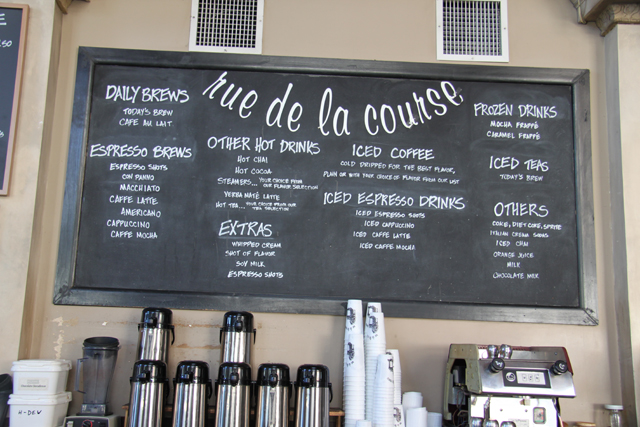 rue de la course
DAILY BREWS
TODAY'S BREW
CAFE AU LAIT
ESPRESSO BREWS
ESPRESSO SHOTS
CON PANNO
MACCHIATO
CAFFE LATTE
AMERICANO
CAPPUCCINO
CAFFE MOCHA
OTHER HOT DRINKS
HOT CHAI
HOT COCOA
STEAMERS... YOUR CHOICE FROM
OUR FLAVOR SELECTION
YERBA MATÉ LATTE
HOT TEA... YOUR CHOICE FROM OUR
TEA SELECTION
EXTRAS
WHIPPED CREAM
SHOT OF FLAVOR
SOY MILK
ESPRESSO SHOTS
ICED COFFEE
COLD DRIPPED FOR THE BEST FLAVOR,
PLAIN OR WITH YOUR CHOICE OF FLAVOR FROM OUR LIST
ICED ESPRESSO DRINKS
ICED ESPRESSO SHOTS
ICED CAPPUCCINO
ICED CAFFE LATTE
ICED CAFFE MOCHA
FROZEN DRINKS
MOCHA FRAPPÉ
CARAMEL FRAPPÉ
ICED TEAS
TODAY'S BREW
OTHERS
COKE, DIET COKE, SPRITE
ITALIAN CREAM SODAS
ICED CHAI
ORANGE JUICE
MILK
CHOCOLATE MILK
H-DEW